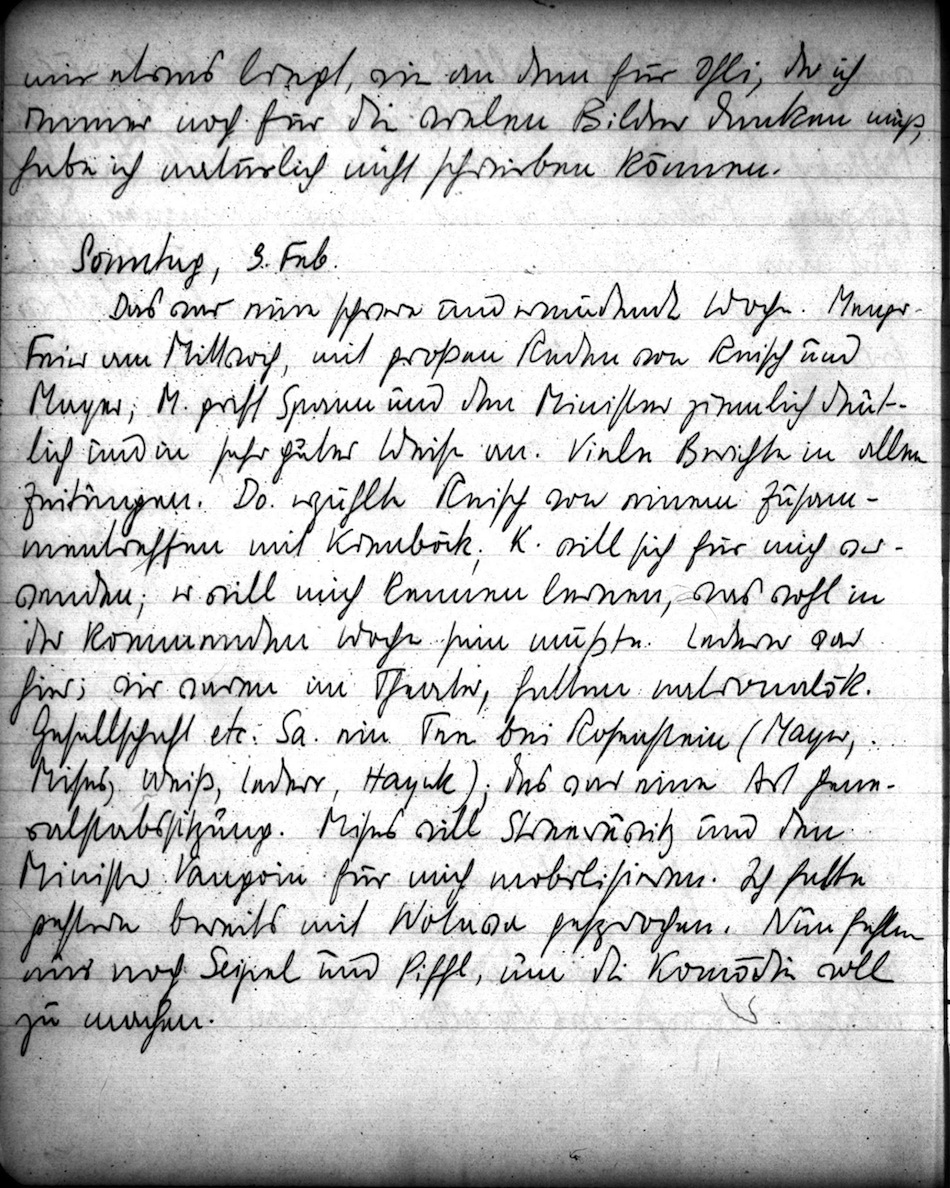 mir etwas liegt, wie an dem für Ilse, der ich
immer noch für die vielen Bilder danken muß,
habe ich natürlich nicht schreiben können.
Sonntag, 3. Feb.
Das war eine schwere und ermüdende Woche. Menger-
Feier am Mittwoch, mit großen Reden von Reisch und
Mayer; M. griff Spann und den Minister ziemlich deut-
lich und in sehr guter Weise an. Viele Berichte in allen
Zeitungen. Do. erzählte Reisch von einem Zusam-
mentreffen mit Kienböck; K. will sich für mich ver-
wenden; er will mich kennen lernen, was wohl in
der kommenden Woche sein müßte. Lederer war
hier; wir waren im Theater, hatten nationalök.
Gesellschaft etc. Sa. ein Tee bei Rosenstein (Mayer,
Mises, Weiß, Lederer, Hayek); das war eine Art Gene-
ralstabssitzung. Mises will Streeruwitz und den
Minister Vaugoin für mich mobilisieren. Ich hatte
gestern bereits mit Wolasa gesprochen. Nun fehlen
nur noch Seipel und Piffl, um die Komödie voll
zu machen.